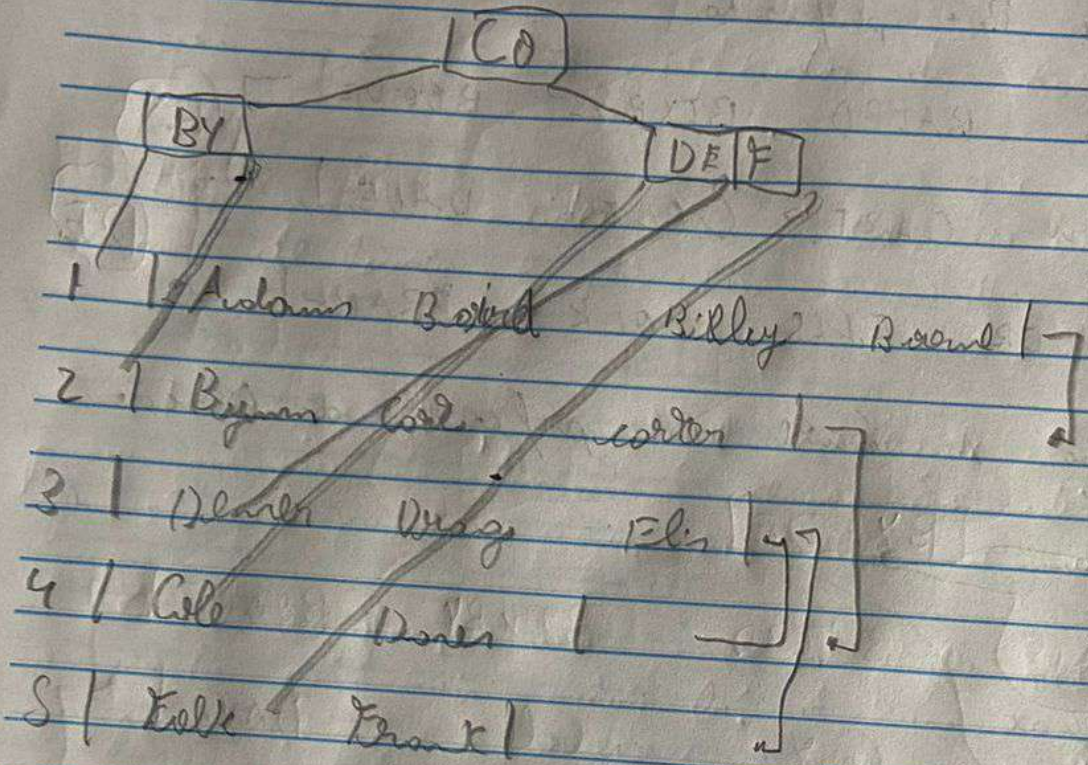 Co
BY DE F
1 Adams Baird Billey Browne
2 Bynum Carl carter
3 Denver Drag Elis
4 Cole Dones
5 Folk Frank